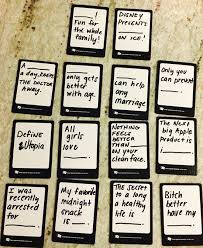 ________!
Fun for the
whole
family!
DISNEY
PRESENTS
________
ON ICE!
A ________
a day keeps
THE DOCTOR
AWAY.
________
only gets
better with
age.
________
can help
any
marriage
Only you
can prevent
________.
DEFINE
Utopia
All
girls
love
________.
NOTHING
FEELS
BETTER THAN
________ ON
your clean
face.
The Next
big Apple
Product is
________!
I was
recently
arrested
for
________.
My favorite
midnight
snack
is ________.
The secret
to a long
& healthy
life is
________.
Bitch
better
have my
________.